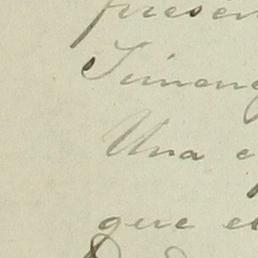 presen
Jimeng
Una e
que e